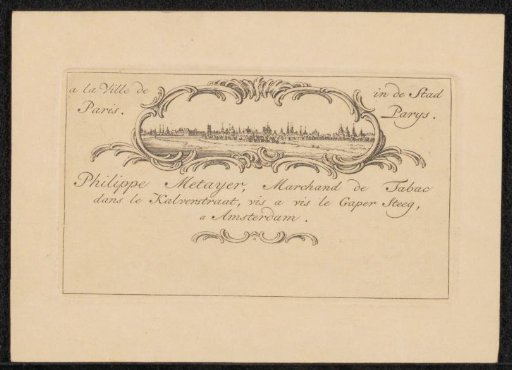 a la Ville de
Paris.
in de Stad
Parys.
Philippe Metayer, Marchand de Tabac
dans le Kalverstraat, vis a vis le Gaper Steeg,
a Amsterdam.